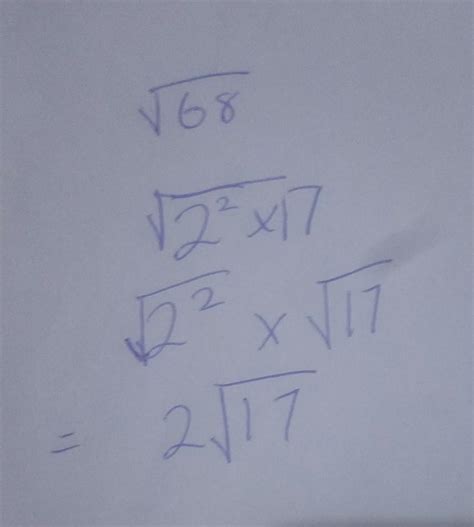 √68
√2² × 17
√2² × √17
= 2√17